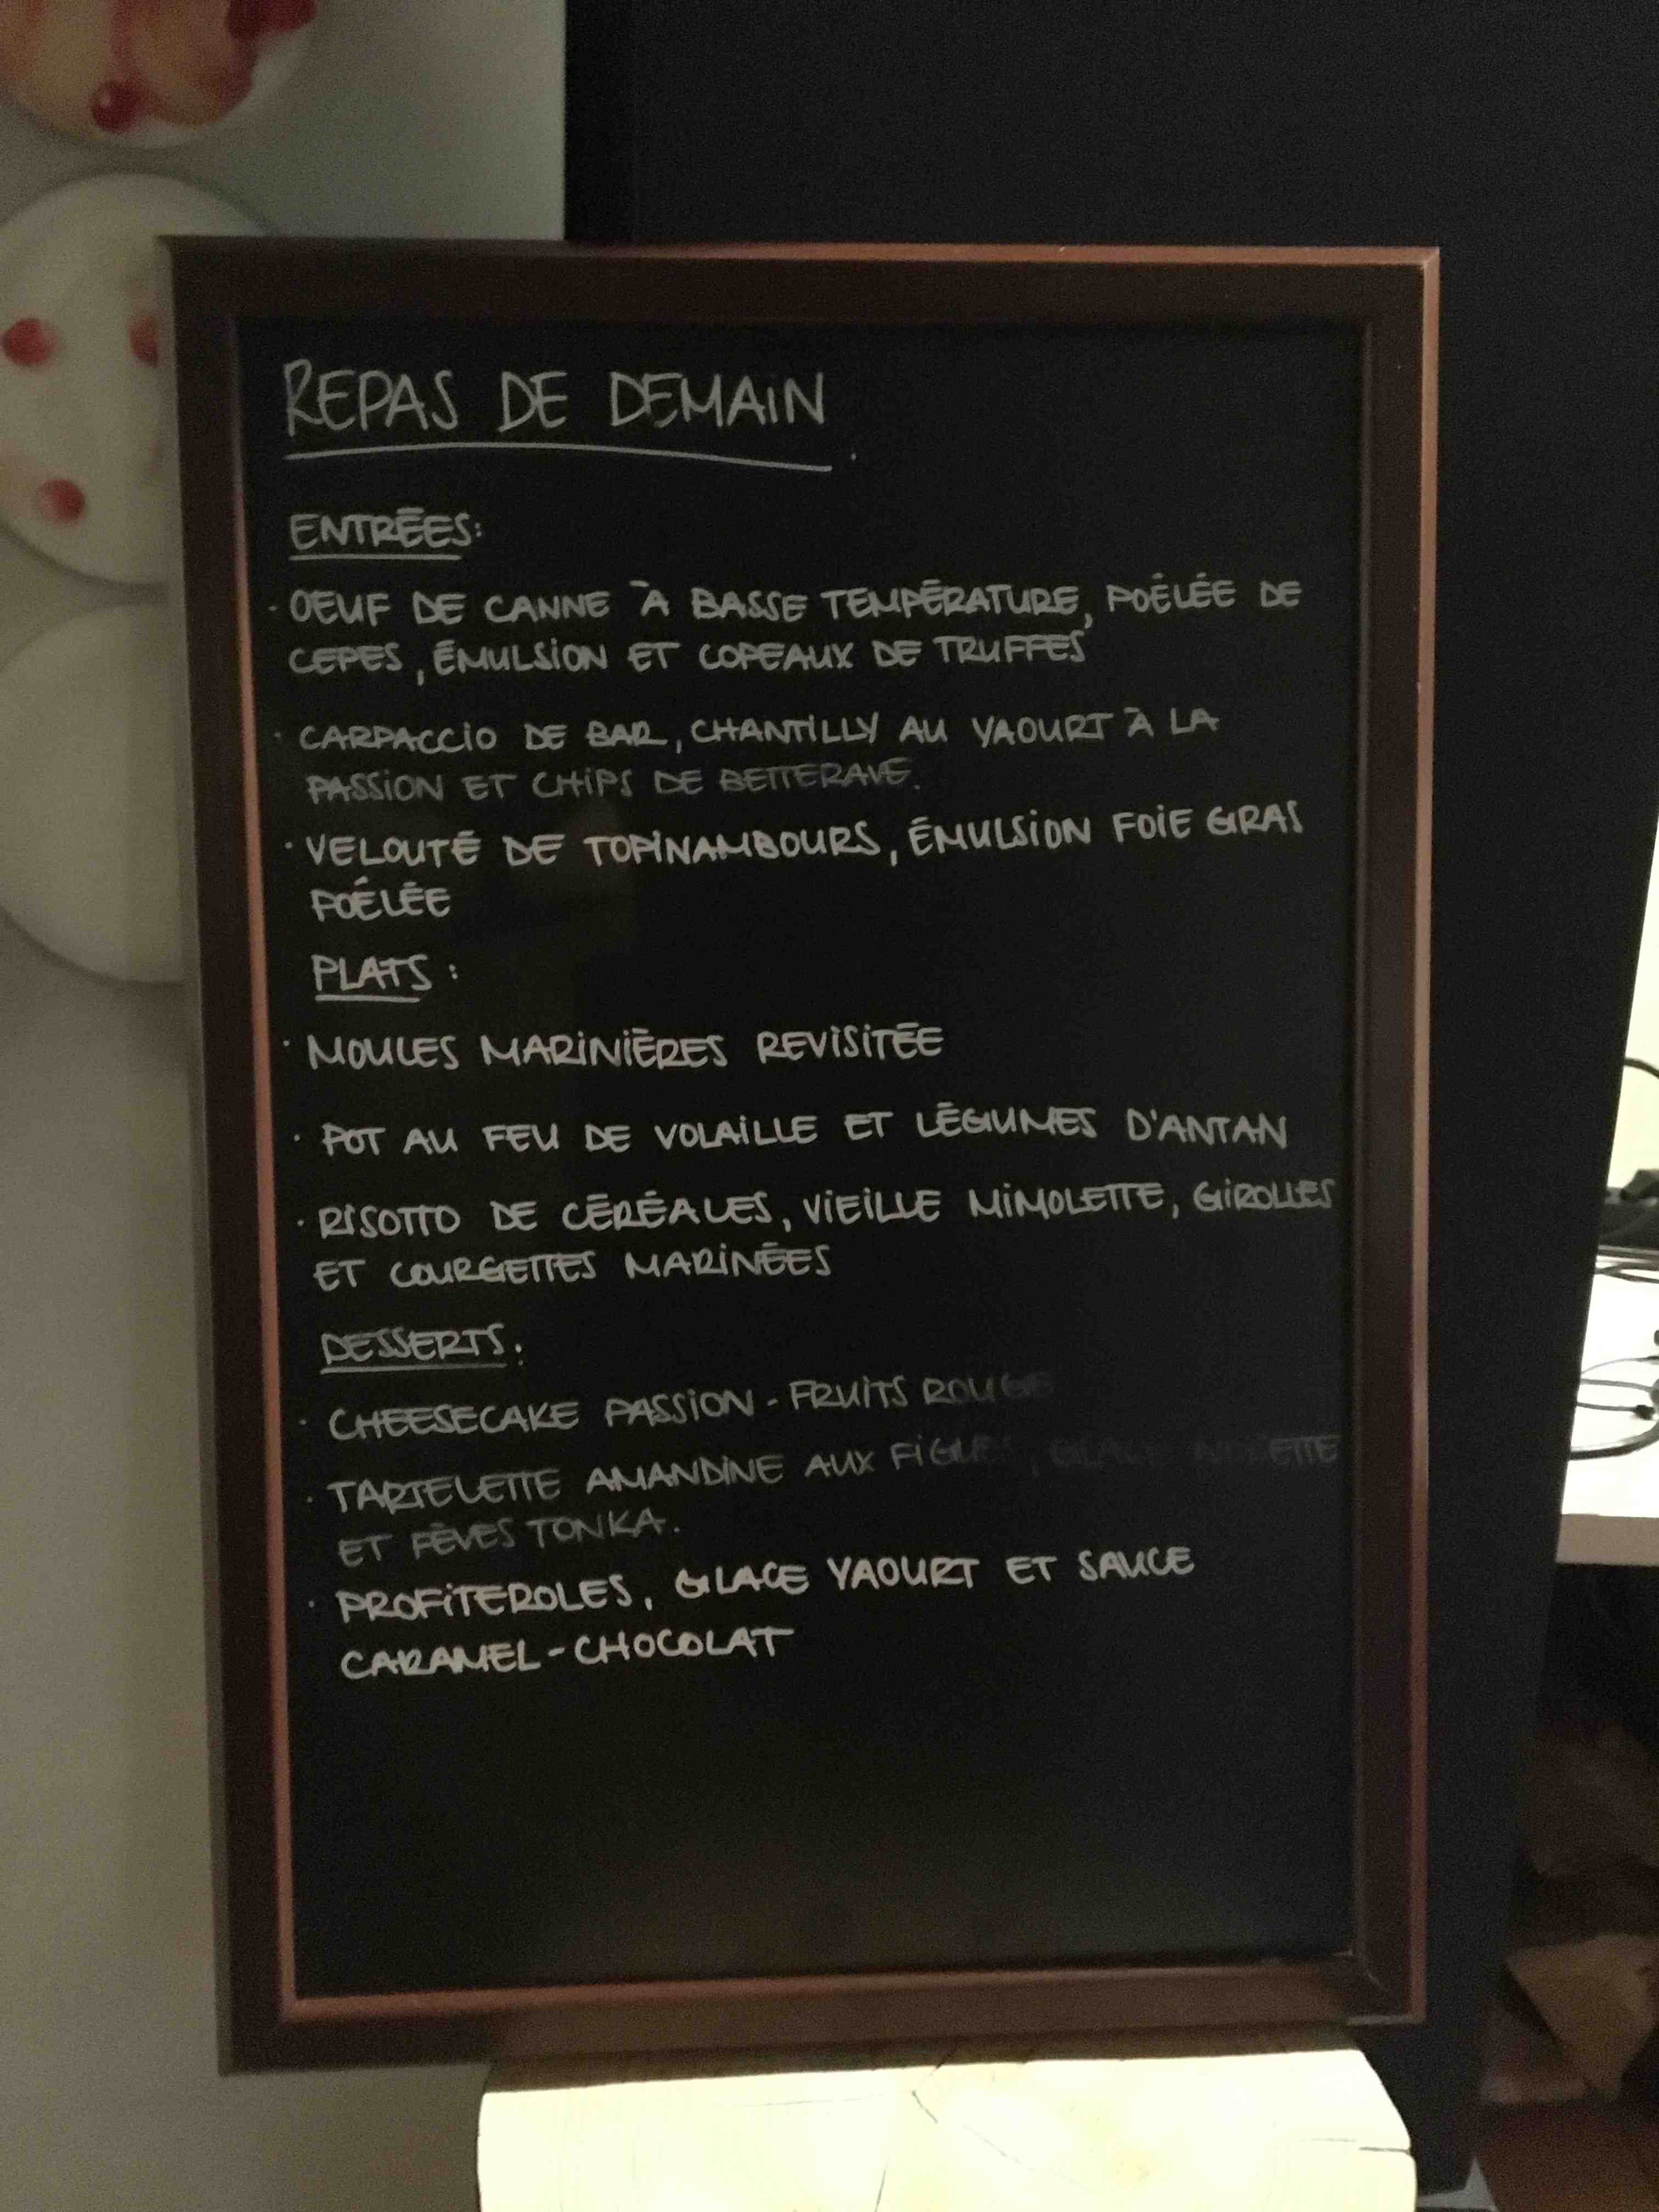 REPAS DE DEMAIN
ENTRÉES:
· OEUF DE CANNE À BASSE TEMPÉRATURE, POÊLÉE DE
CEPES, ÉMULSION ET COPEAUX DE TRUFFES
· CARPACCIO DE BAR, CHANTILLY AU YAOURT À LA
PASSION ET CHIPS DE BETTERAVE.
· VELOUTÉ DE TOPINAMBOURS, ÉMULSION FOIE GRAS
POÉLÉE
PLATS:
· MOULES MARINIÈRES REVISITÉE
· POT AU FEU DE VOLAILLE ET LÉGUMES D'ANTAN
· RISOTTO DE CÉRÉALES, VIEILLE MIMOLETTE, GIROLLES
ET COURGETTES MARINÉES
DESSERTS:
· CHEESECAKE PASSION - FRUITS
· TARTELETTE AMANDINE AUX FIGUES, GLACE
ET FÈVES TONKA.
· PROFITEROLES, GLACE YAOURT ET SAUCE
CARAMEL - CHOCOLAT